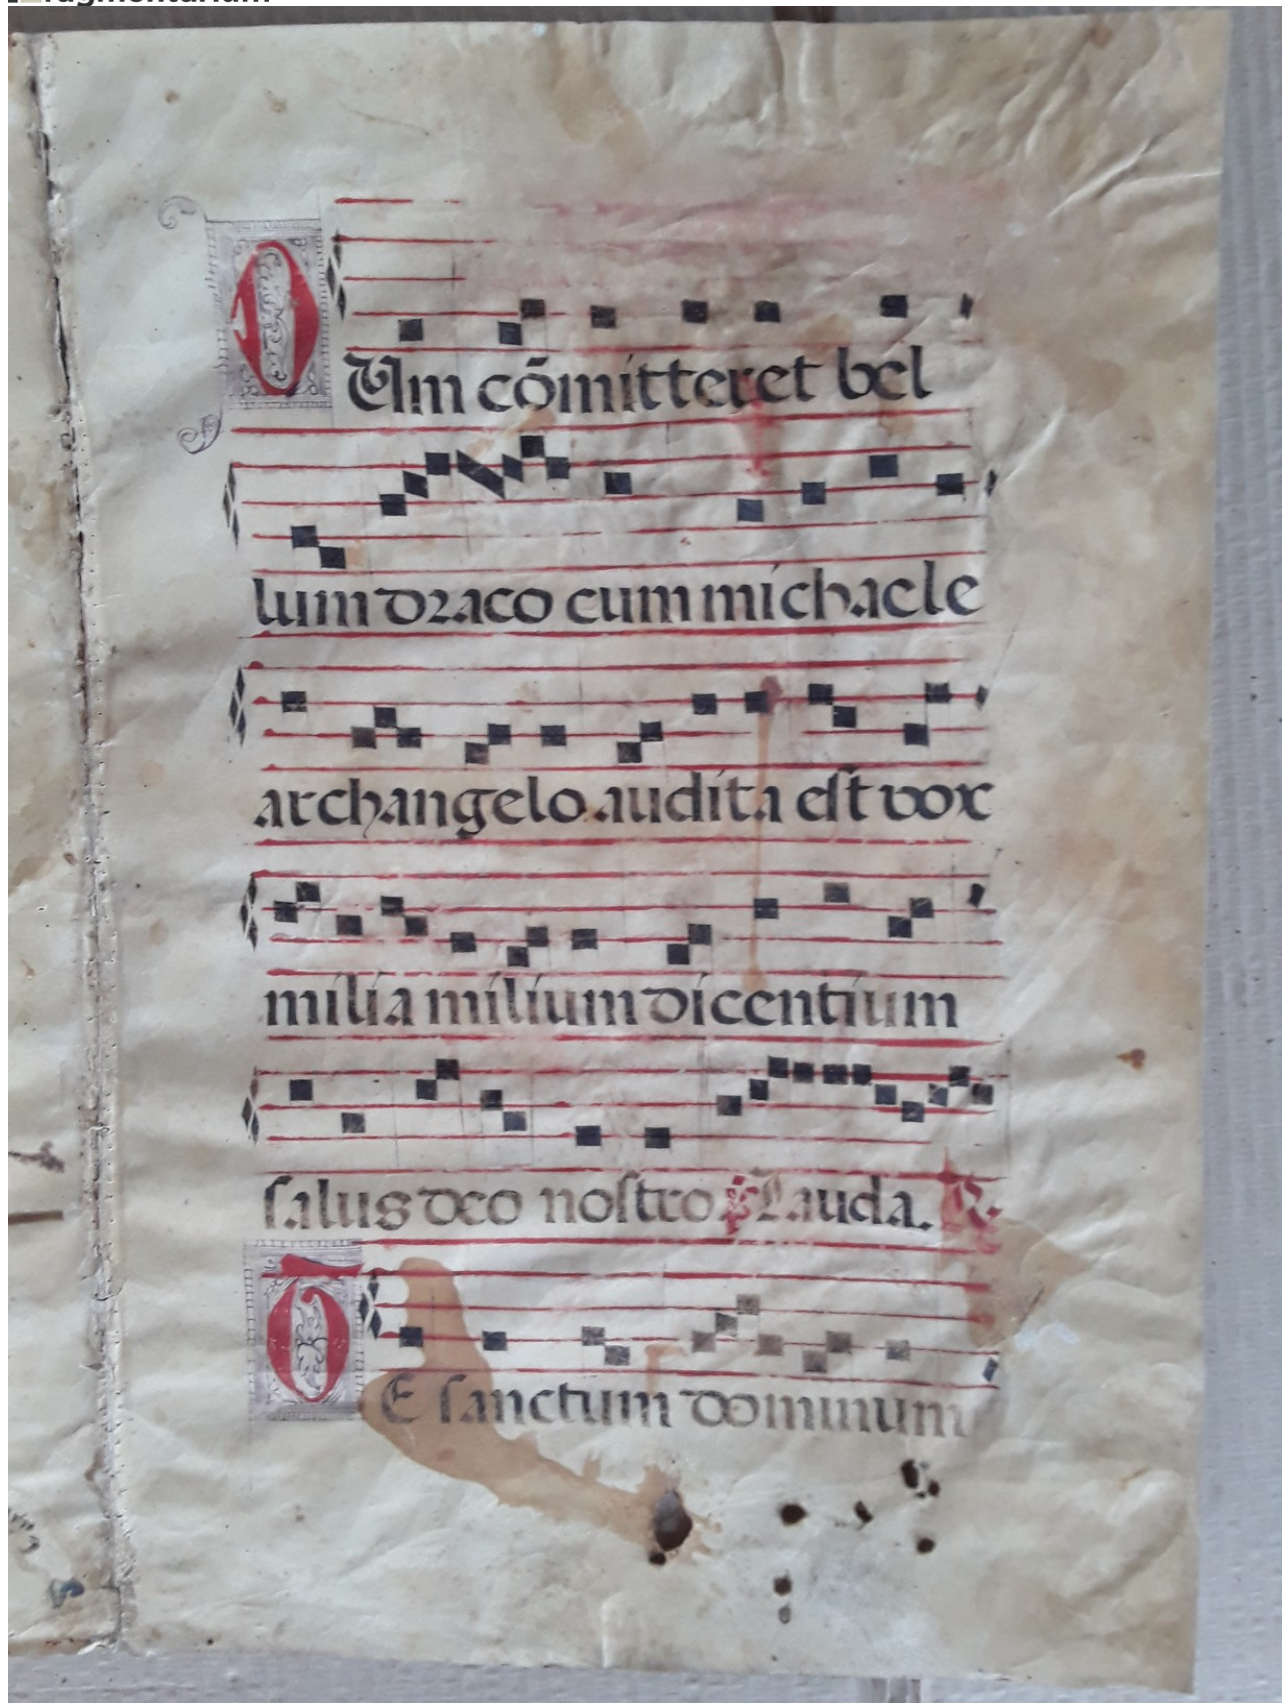 DUm cõmitteret bel
lum draco cum michaele
archangelo audita est vox
milia milium dicentium
salus deo nostro ℣ Lauda. R.
TE sanctum dominum